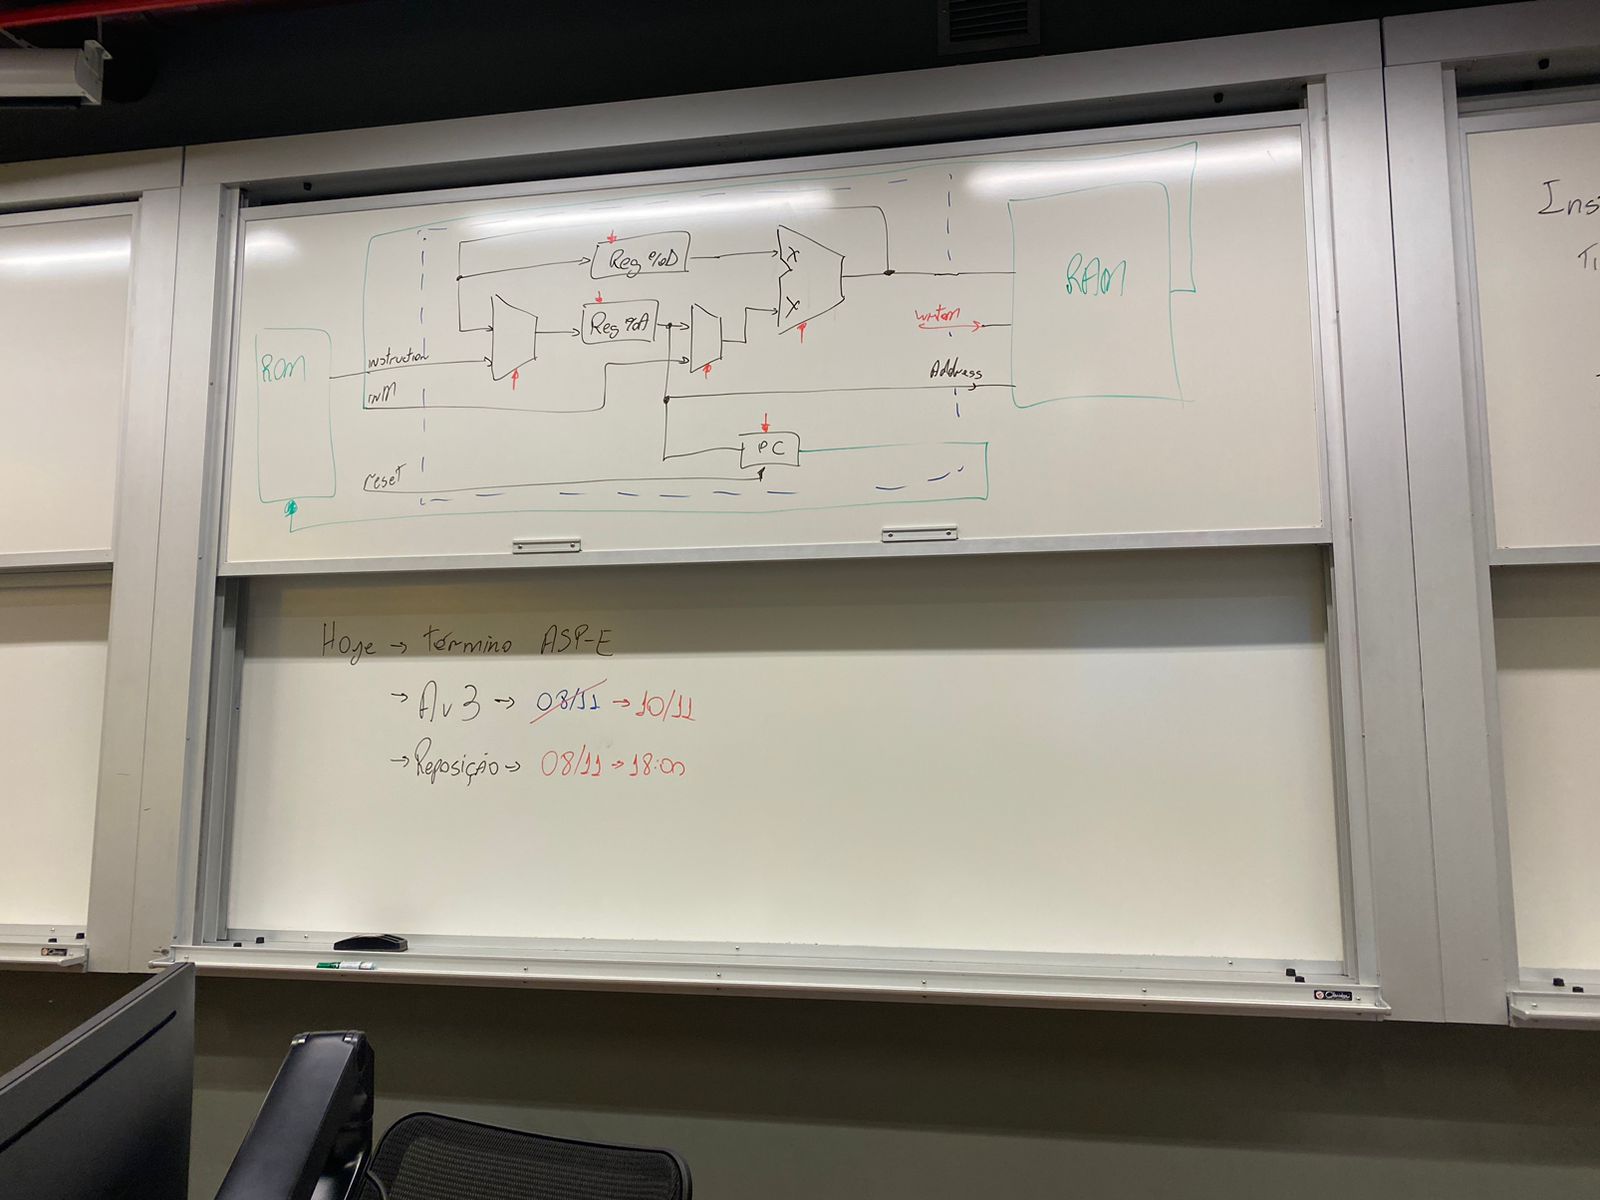 ROM
instruction
inM
reset
Reg %D
Reg %A
X
X
PC
writeM
Address
RAM
Hoje → término ASP-E
→ Av3 → 08/11 → 10/11
→ Reposição → 08/11 → 18:00
Ins